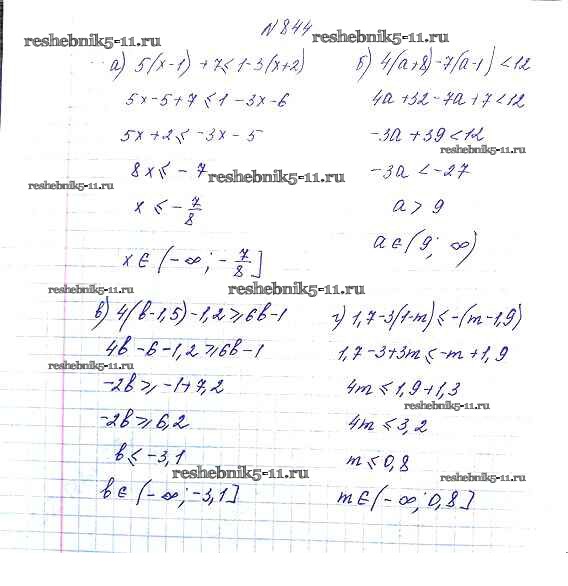 N 844
reshebnik5-11.ru
reshebnik5-11.ru
а) 5(x-1)+7≤1-3(x+2)
5x-5+7≤1-3x-6
5x+2≤-3x-5
8x≤-7
reshebnik5-11.ru
reshebnik5-11.ru
x≤-7/8
x∈(-∞; -7/8]
б) 4(a+8)-7(a-1)<12
4a+32-7a+7<12
-3a+39<12
reshebnik5-11.ru
-3a<-27
a>9
a∈(9; ∞)
reshebnik5-11.ru
reshebnik5-11.ru
в) 4(b-1,5)-1,2≥6b-1
4b-6-1,2≥6b-1
reshebnik5-11.ru
-2b≥-1+7,2
-2b≥6,2
b≤-3,1
reshebnik5-11.ru
b∈(-∞; -3,1]
г) 1,7-3(1-m)≤-(m-1,9)
1,7-3+3m≤-m+1,9
4m≤1,9+1,3
reshebnik5-11.ru
4m≤3,2
m≤0,8
reshebnik5-11.ru
m∈(-∞; 0,8]